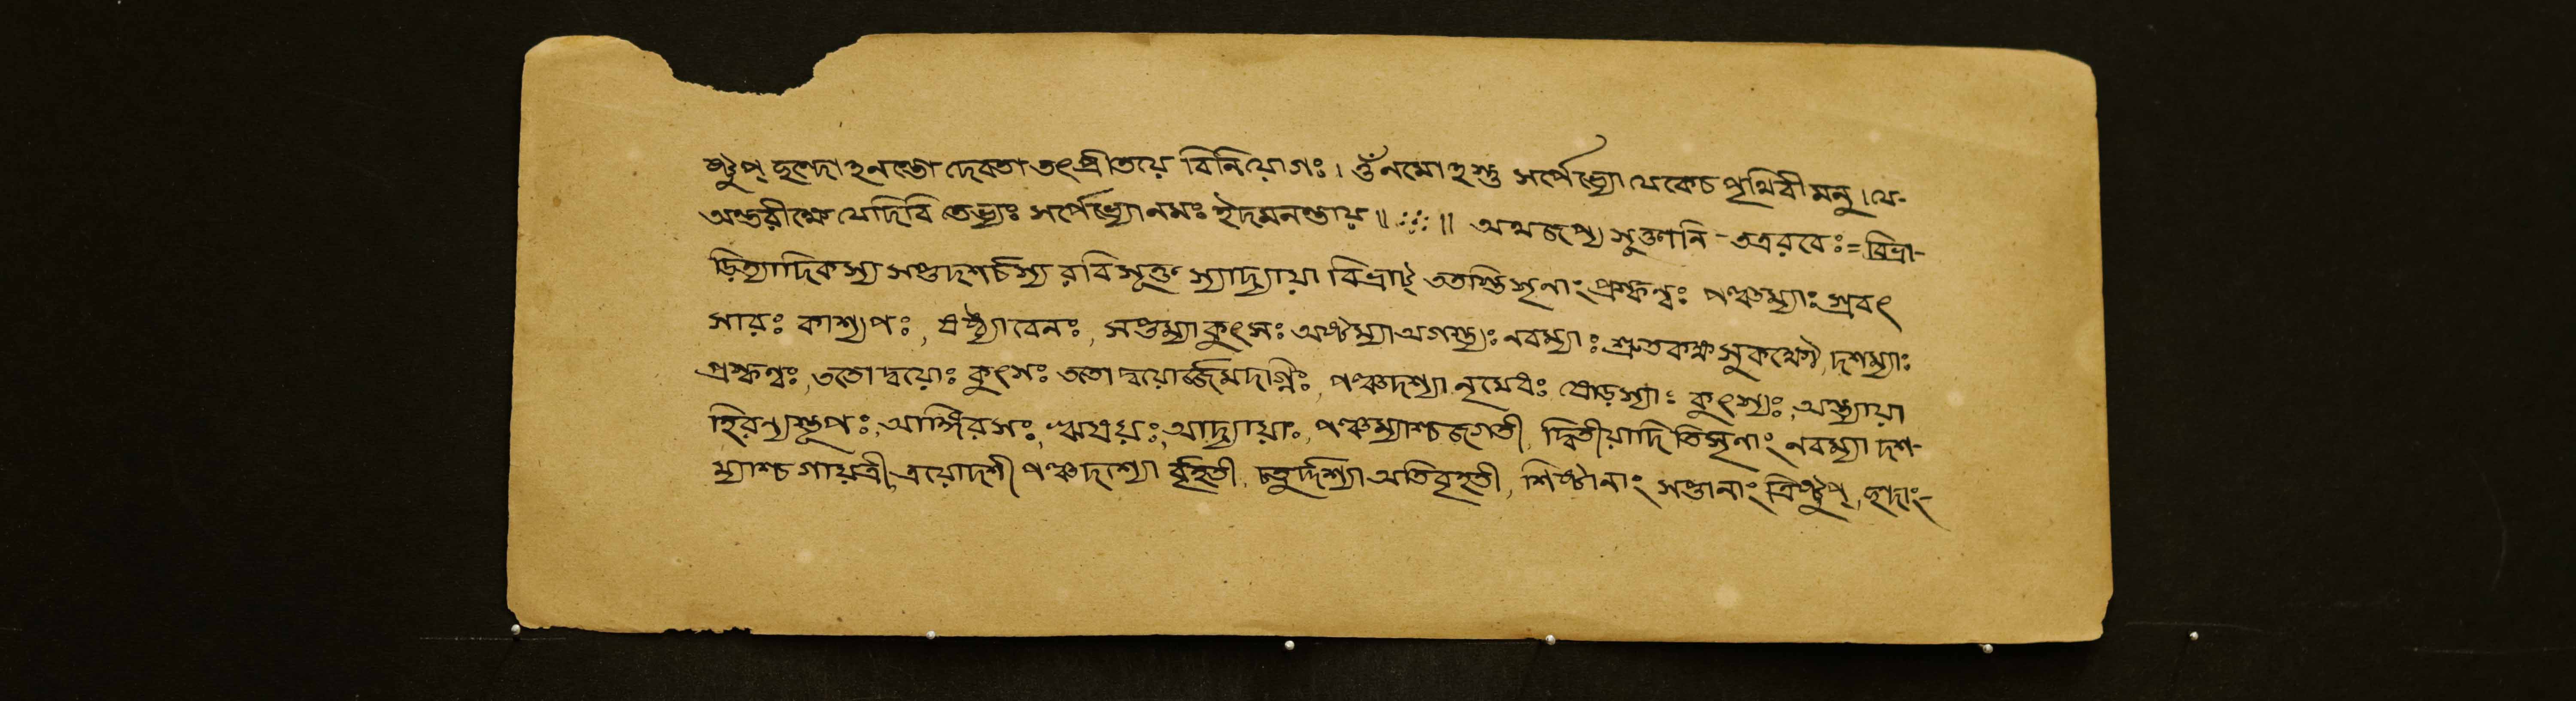 ষ্টুপ্ ছন্দোঽনন্তো দেবতা তৎপ্রীতয়ে বিনিয়োগঃ। ওঁ নমোঽস্তু সর্পেভ্যো যেকেচ পৃথিবীমনু। যে-
অন্তরীক্ষে যেদিবি তেভ্যঃ সর্পেভ্যোনমঃ ইদমনন্তায়॥ ჻ ॥ অথজপ্য সূক্তানি - তত্ররবেঃ = বিভ্রা-
ড়িত্যাদিকস্য সপ্তদশর্চস্য রবিসূক্তস্যাদ্যায়া বিভ্রাট্ ততস্তিসৃনাং প্রস্কন্বঃ পঞ্চম্যাঃ প্রবৎ
সারঃ কাশ্যপঃ, ষষ্ঠ্যাবেনঃ, সপ্তম্যা কুৎসঃ অষ্টম্যা অগস্ত্যঃ নবম্যাঃ শ্রুতকক্ষ সুকক্ষৌ, দশম্যাঃ
প্রস্কন্বঃ, ততো দ্বয়োঃ কুৎসঃ ততো দ্বয়োর্জ্জমদাগ্নিঃ, পঞ্চদশ্যা নৃমেধঃ ষোড়স্যাঃ কুৎস্যঃ, অন্ত্যায়া
হিরন্যস্তূপঃ, আঙ্গিরসঃ, ঋষয়ঃ, আদ্যায়াঃ, পঞ্চম্যাশ্চজগতী, দ্বিতীয়াদি তিসৃনাং নবম্যা দশ-
ম্যাশ্চ গায়ত্রী, ত্রয়োদশী পঞ্চদশ্যো র্বৃহতী, চতুর্দ্দশ্যা অতিবৃহতী, শিষ্টানাং সপ্তানাং ত্রিষ্টুপ্, ছন্দাং-